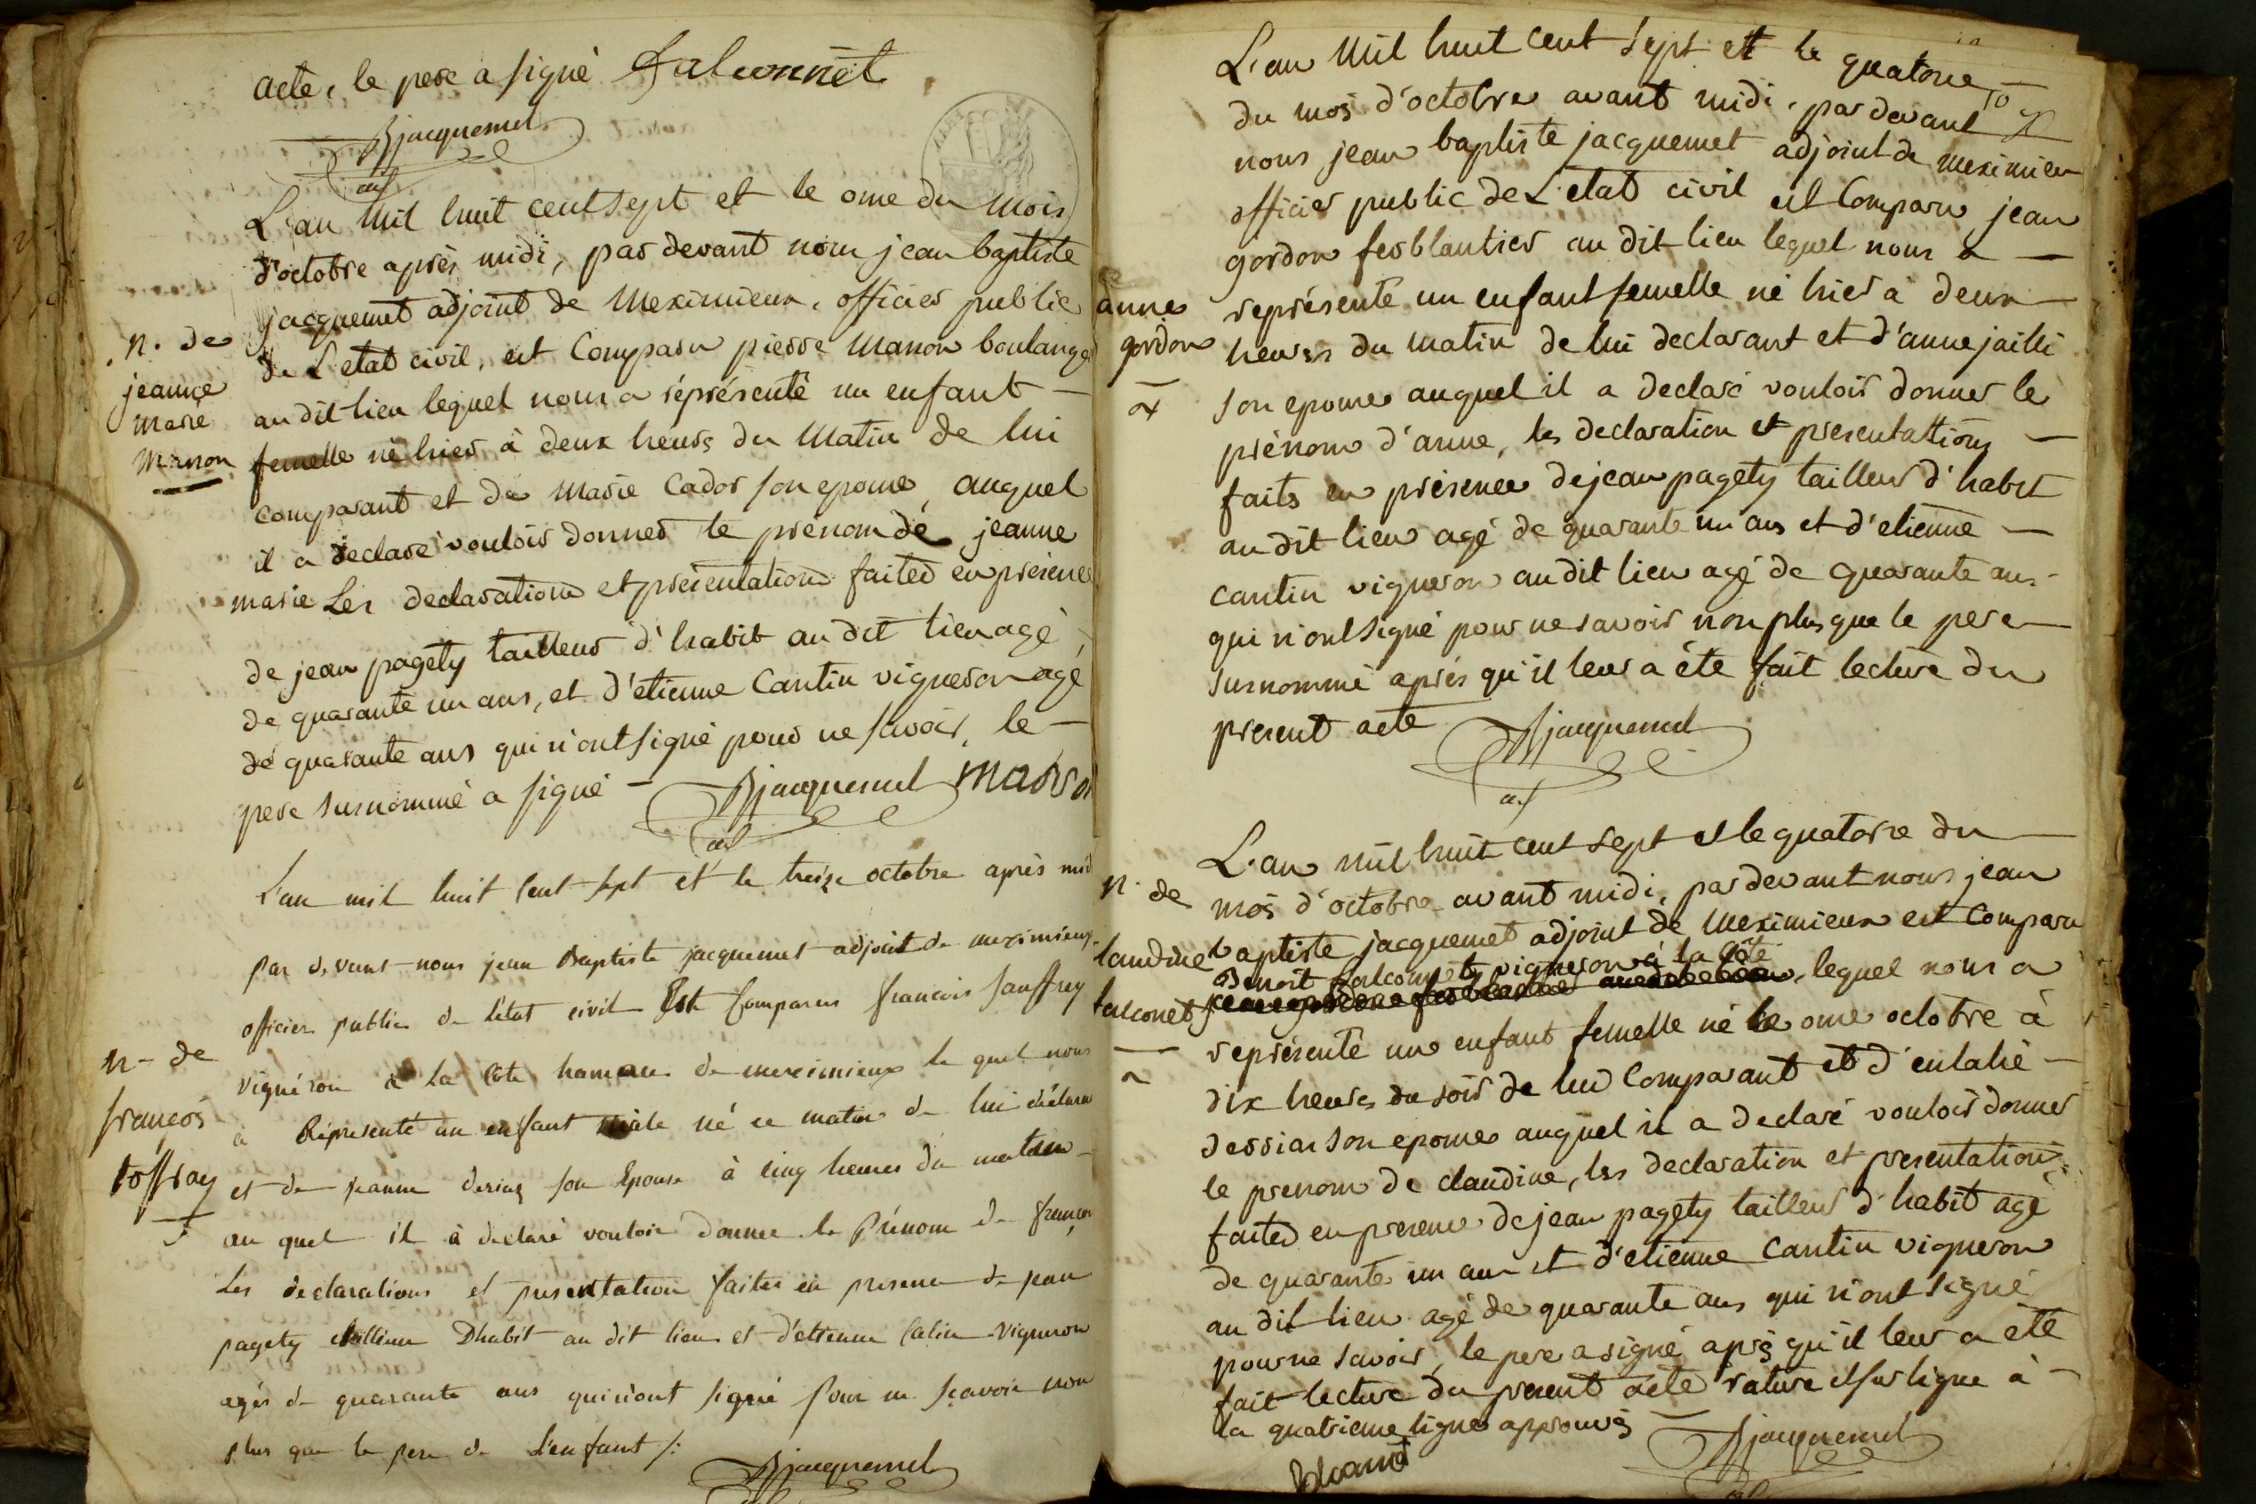 acte, le pere a signé Falconnet
Bjacquemet
adj
L'an mil huit cent sept et le onze du mois
d'octobre après midi, par devant nous jean baptiste
jacquemet adjoint de Meximieux, officier public
n. de
jeanne
marie
manon
de L'etat civil, est Comparu pierre manon boulanger
au dit lieu lequel nous a réprésenté un enfant
femelle né hier à deux heures du Matin de lui
comparant et de marie Cador son epouse, auquel
il a declaré vouloir donner le prénom de jeanne
marie Les declarations et présentations faites en présence
de jean pagety tailleur d'habit au dit lieu agé
de quarante un ans, et d'etienne Cantin vigneron agé
de quarante ans qui n'ont signé pour ne savoir, le
pere surnommé a signé
Bjacquemet manon
adj
L'an mil huit Cent sept et le treize octobre après midi
par devant nous jean Baptiste jacquemet adjoint de meximieux
officier public de L'état civil Est Comparus francois sauffrey
n - de
françois
soffray
vignéron a la Côte hameau de meximieux le quel nous
a Réprésenté un enfant mâle né ce matin de lui déclarant
et de jeanne son Epouse à cinq heures du matin
au quel il à declaré vouloir donner le Prénom de françois
Les declarations et présentation faites en présence de jean
pagety tailleur Dhabit au dit lieu et d'étienne Catin vigneron
agés de quarante ans qui n'ont signé pour ne sçavoir non
plus que le pere de L'enfant /:
Bjacquemet
L'an Mil huit cent sept et le quatorze
du mois d'octobre avant midi, par devant
nous jean baptiste jacquemet adjoint de meximieux
officier public de L'etat civil est Comparu jean
gordon ferblantier au dit lieu lequel nous a
anne
gordon
représenté un enfant femelle né hier à deux
heures du matin de lui declarant et d'anne jailli
son epouse auquel il a declaré vouloir donner le
prénom d'anne, les declaration et presentations
faits en présence de jean pagety tailleur d'habit
au dit lieu agé de quarante un ans et d'etienne
cantin vigneron au dit lieu agé de quarante ans
qui n'ont signé pour ne savoir non plus que le pere
surnommé après qu'il leur a été fait lecture du
present acte
Bjacquemet
adj
L'an mil huit cent sept et le quatorze du
n. de
laudine
falconet
mois d'octobre avant midi, par devant nous jean
baptiste jacquemet adjoint de Meximieux est Comparu
Benoit falconnet vigneron à la Côte
jean gordon ferblantier au dit lieu, lequel nous a
représenté une enfant femelle né le onze octobre à
dix heures du soir de lui Comparant et d'eulalie
dessiar son epouse auquel il a declaré vouloir donner
le prenom de claudine, les declaration et presentations
faites en presence de jean pagety tailleur d'habit agé
de quarante un ans et d'etienne Cantin vigneron
au dit lieu agé de quarante ans qui n'ont signé
pour ne savoir, le pere a signé après qu'il leur a été
fait lecture du present acte rature et surligne à
la quatrieme ligne approuvés
Bjacquemet